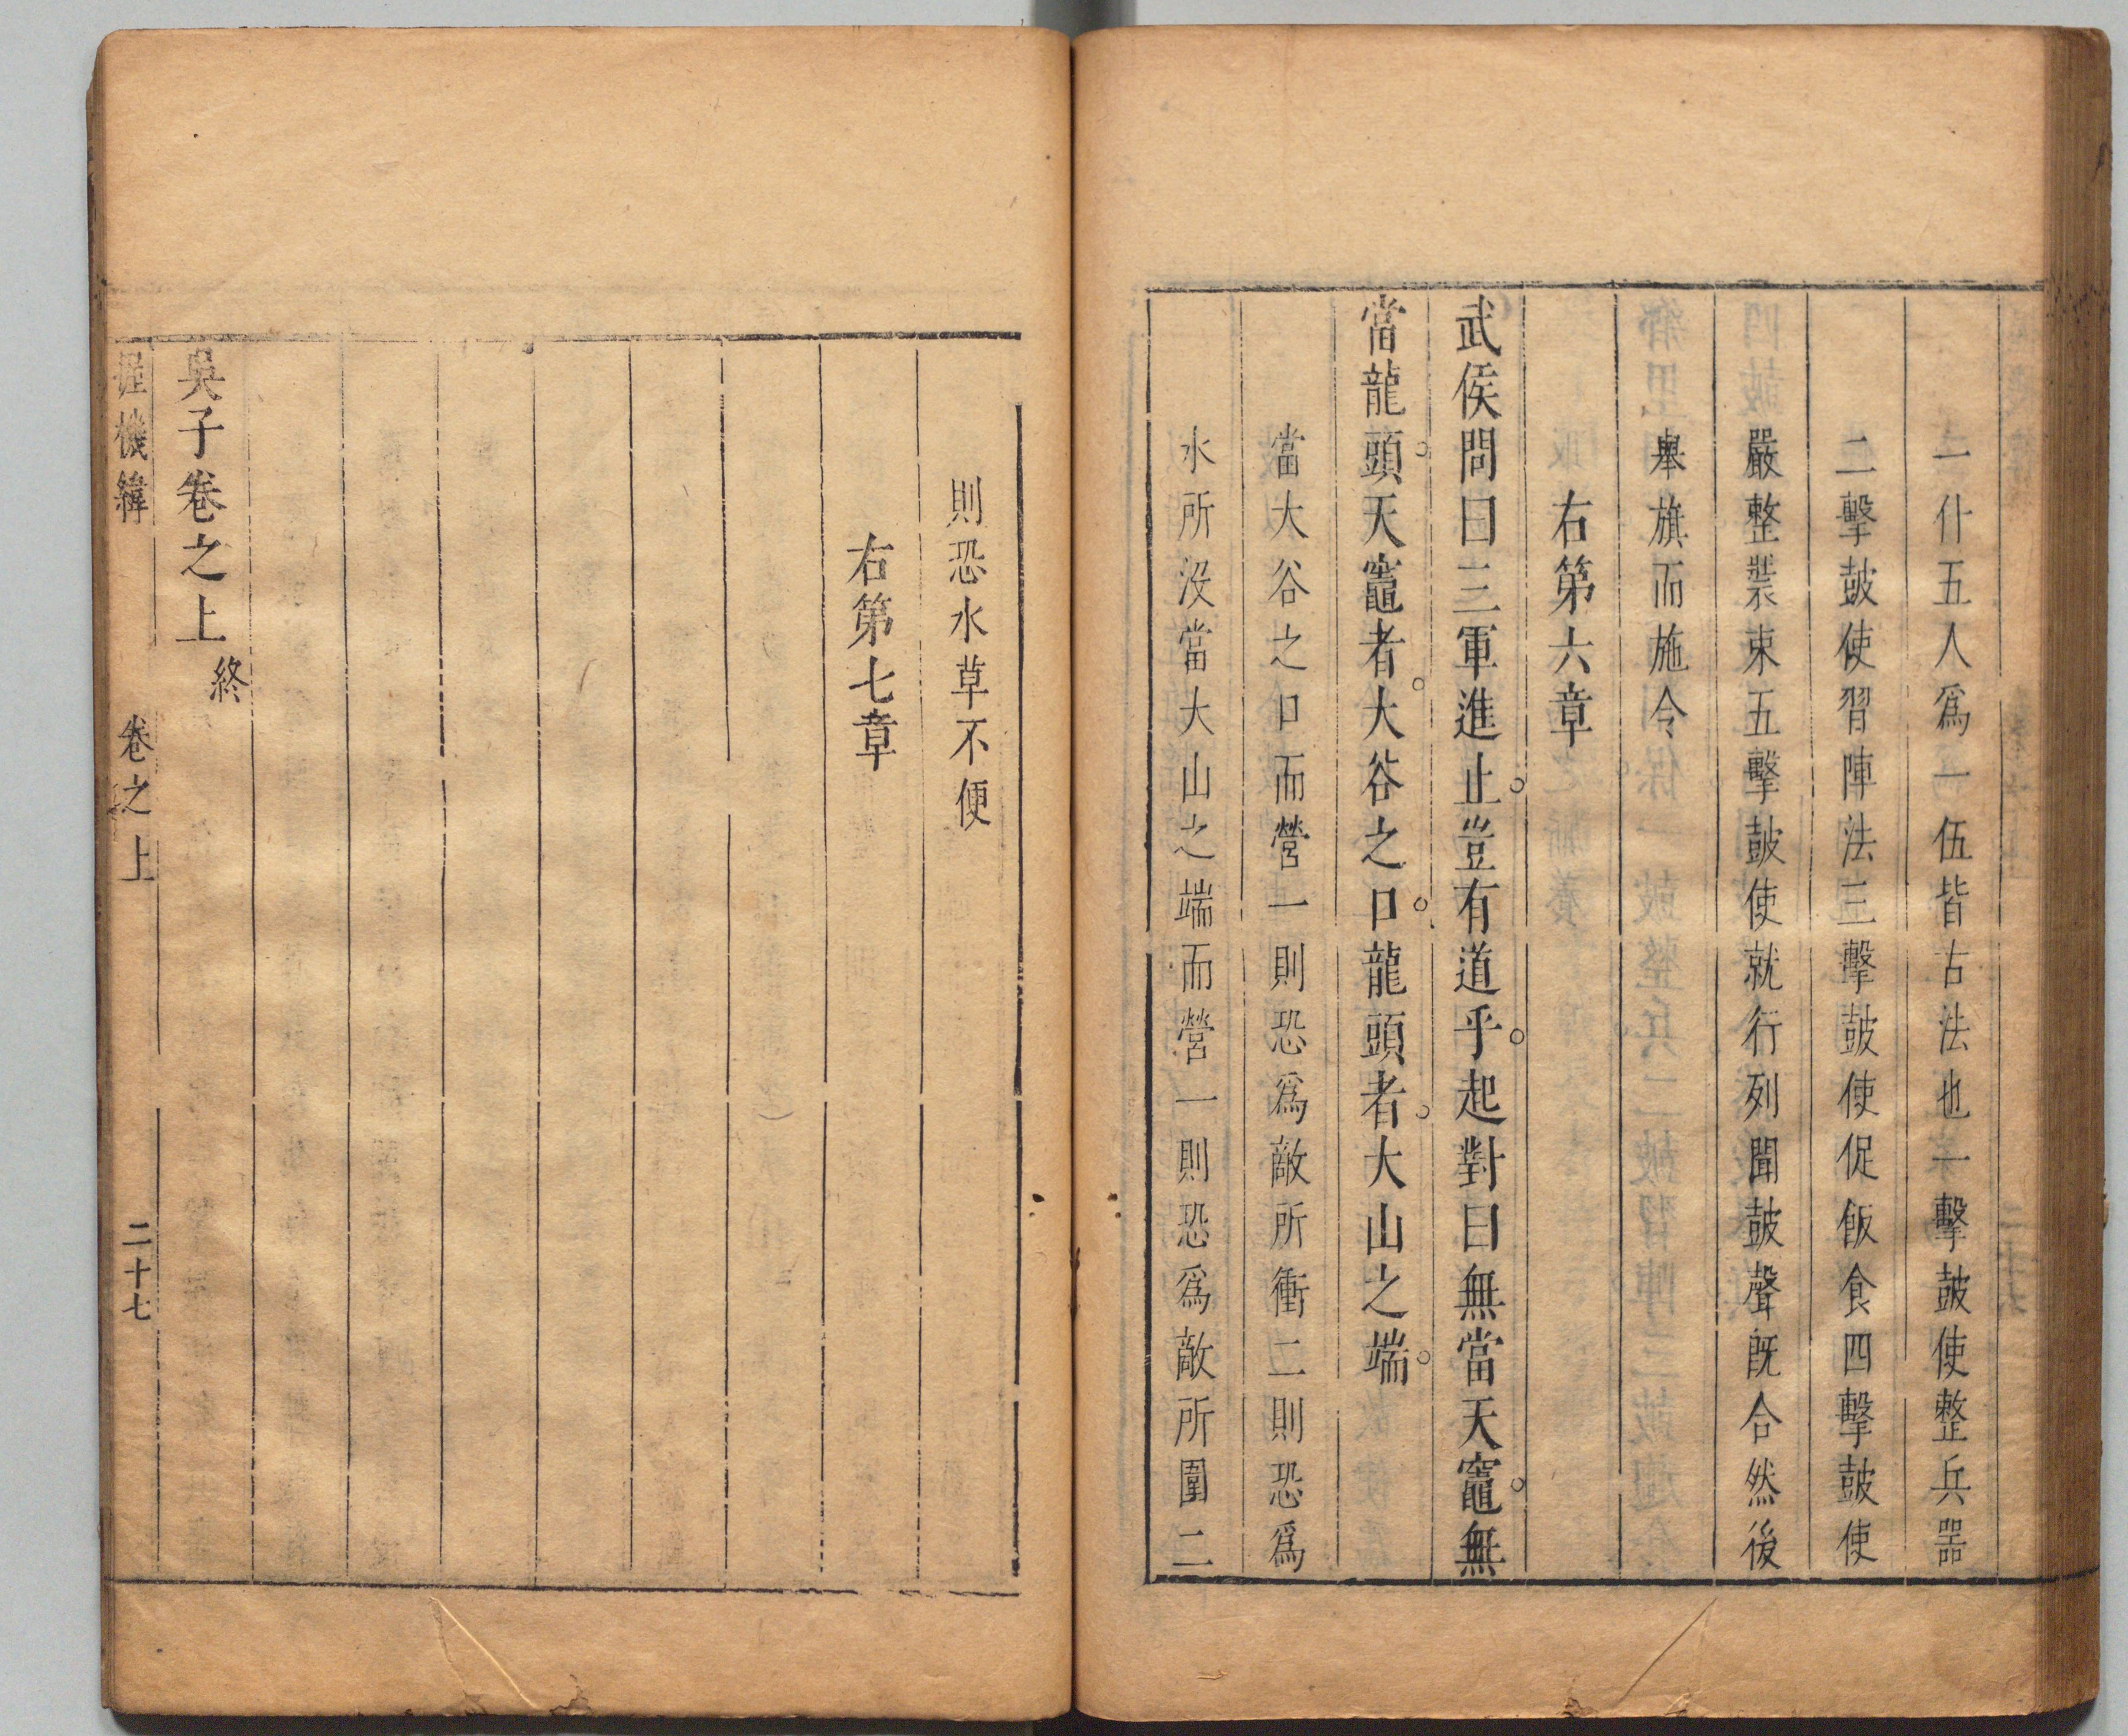 一什五人爲一伍皆古法也一擊鼓使整兵噐
二擊鼓使習陣法三擊鼓使促飯食四擊鼓使
嚴整裝束五擊鼓使就行列聞鼓聲旣合然後
舉旗而施令
右第六章
武侯問曰三軍進止。豈有道乎。起對曰無當天竈。無
當龍頭。天竈者。大谷之口。龍頭者。大山之端。
當大谷之口而營一則恐爲敵所衝二則恐爲
水所沒當大山之端而營一則恐爲敵所圍二
則恐水草不便
右第七章
吳子卷之上終
握機緯 卷之上 二十七